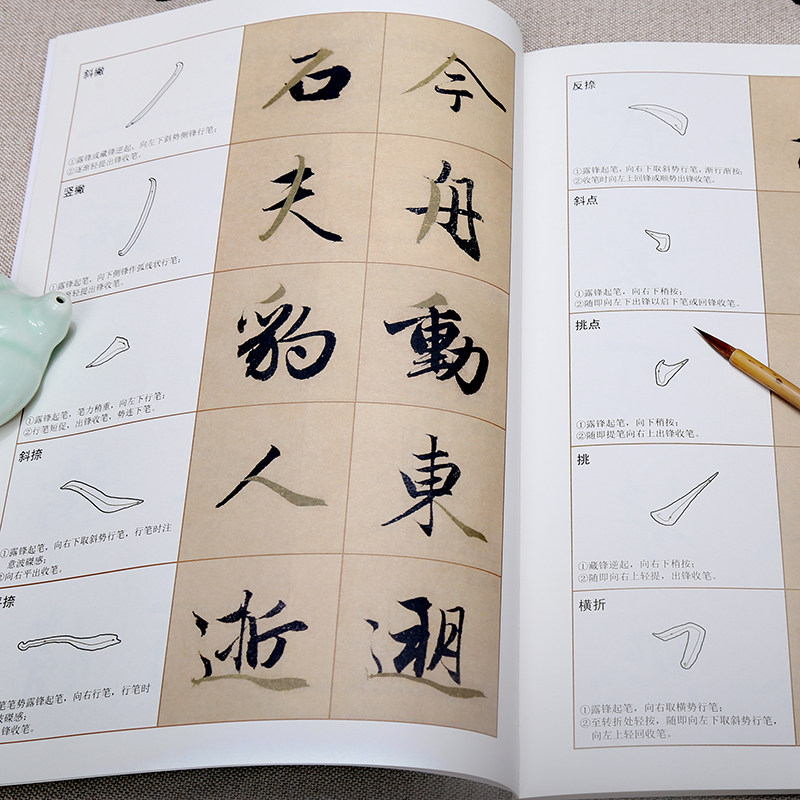 斜撇
①露锋或藏锋逆起、向左下斜势侧锋行笔;
②逐渐轻提出锋收笔。
石 今
竖撇
①露锋起笔,向下侧锋作弧线状行笔;
渐轻提出锋收笔。
夫 舟
①露锋起笔,笔力稍重,向左下行笔;
②行笔短促,出锋收笔,势连下笔。
豹 動
斜捺
①露锋起笔,向右下取斜势行笔,行笔时注
意波磔感;
②向右平出收笔。
人 東
捺
笔势露锋起笔,向右行笔,行笔时
波磔感;
锋收笔。
逝
反捺
①露锋起笔,向右下取斜势行笔,渐行渐按;
②收笔时向左上回锋或顺势出锋收笔。
斜点
①露锋起笔,向右下稍按;
②随即向左下出锋以启下笔或回锋收笔。
挑点
①露锋起笔,向下稍按;
②随即提笔向右上出锋收笔。
挑
①藏锋逆起,向右下稍按;
②随即向右上轻提,出锋收笔。
横折
①露锋起笔,向右取横势行笔;
②至转折处轻按,随即向左下取斜势行笔,
向左上轻回收笔。